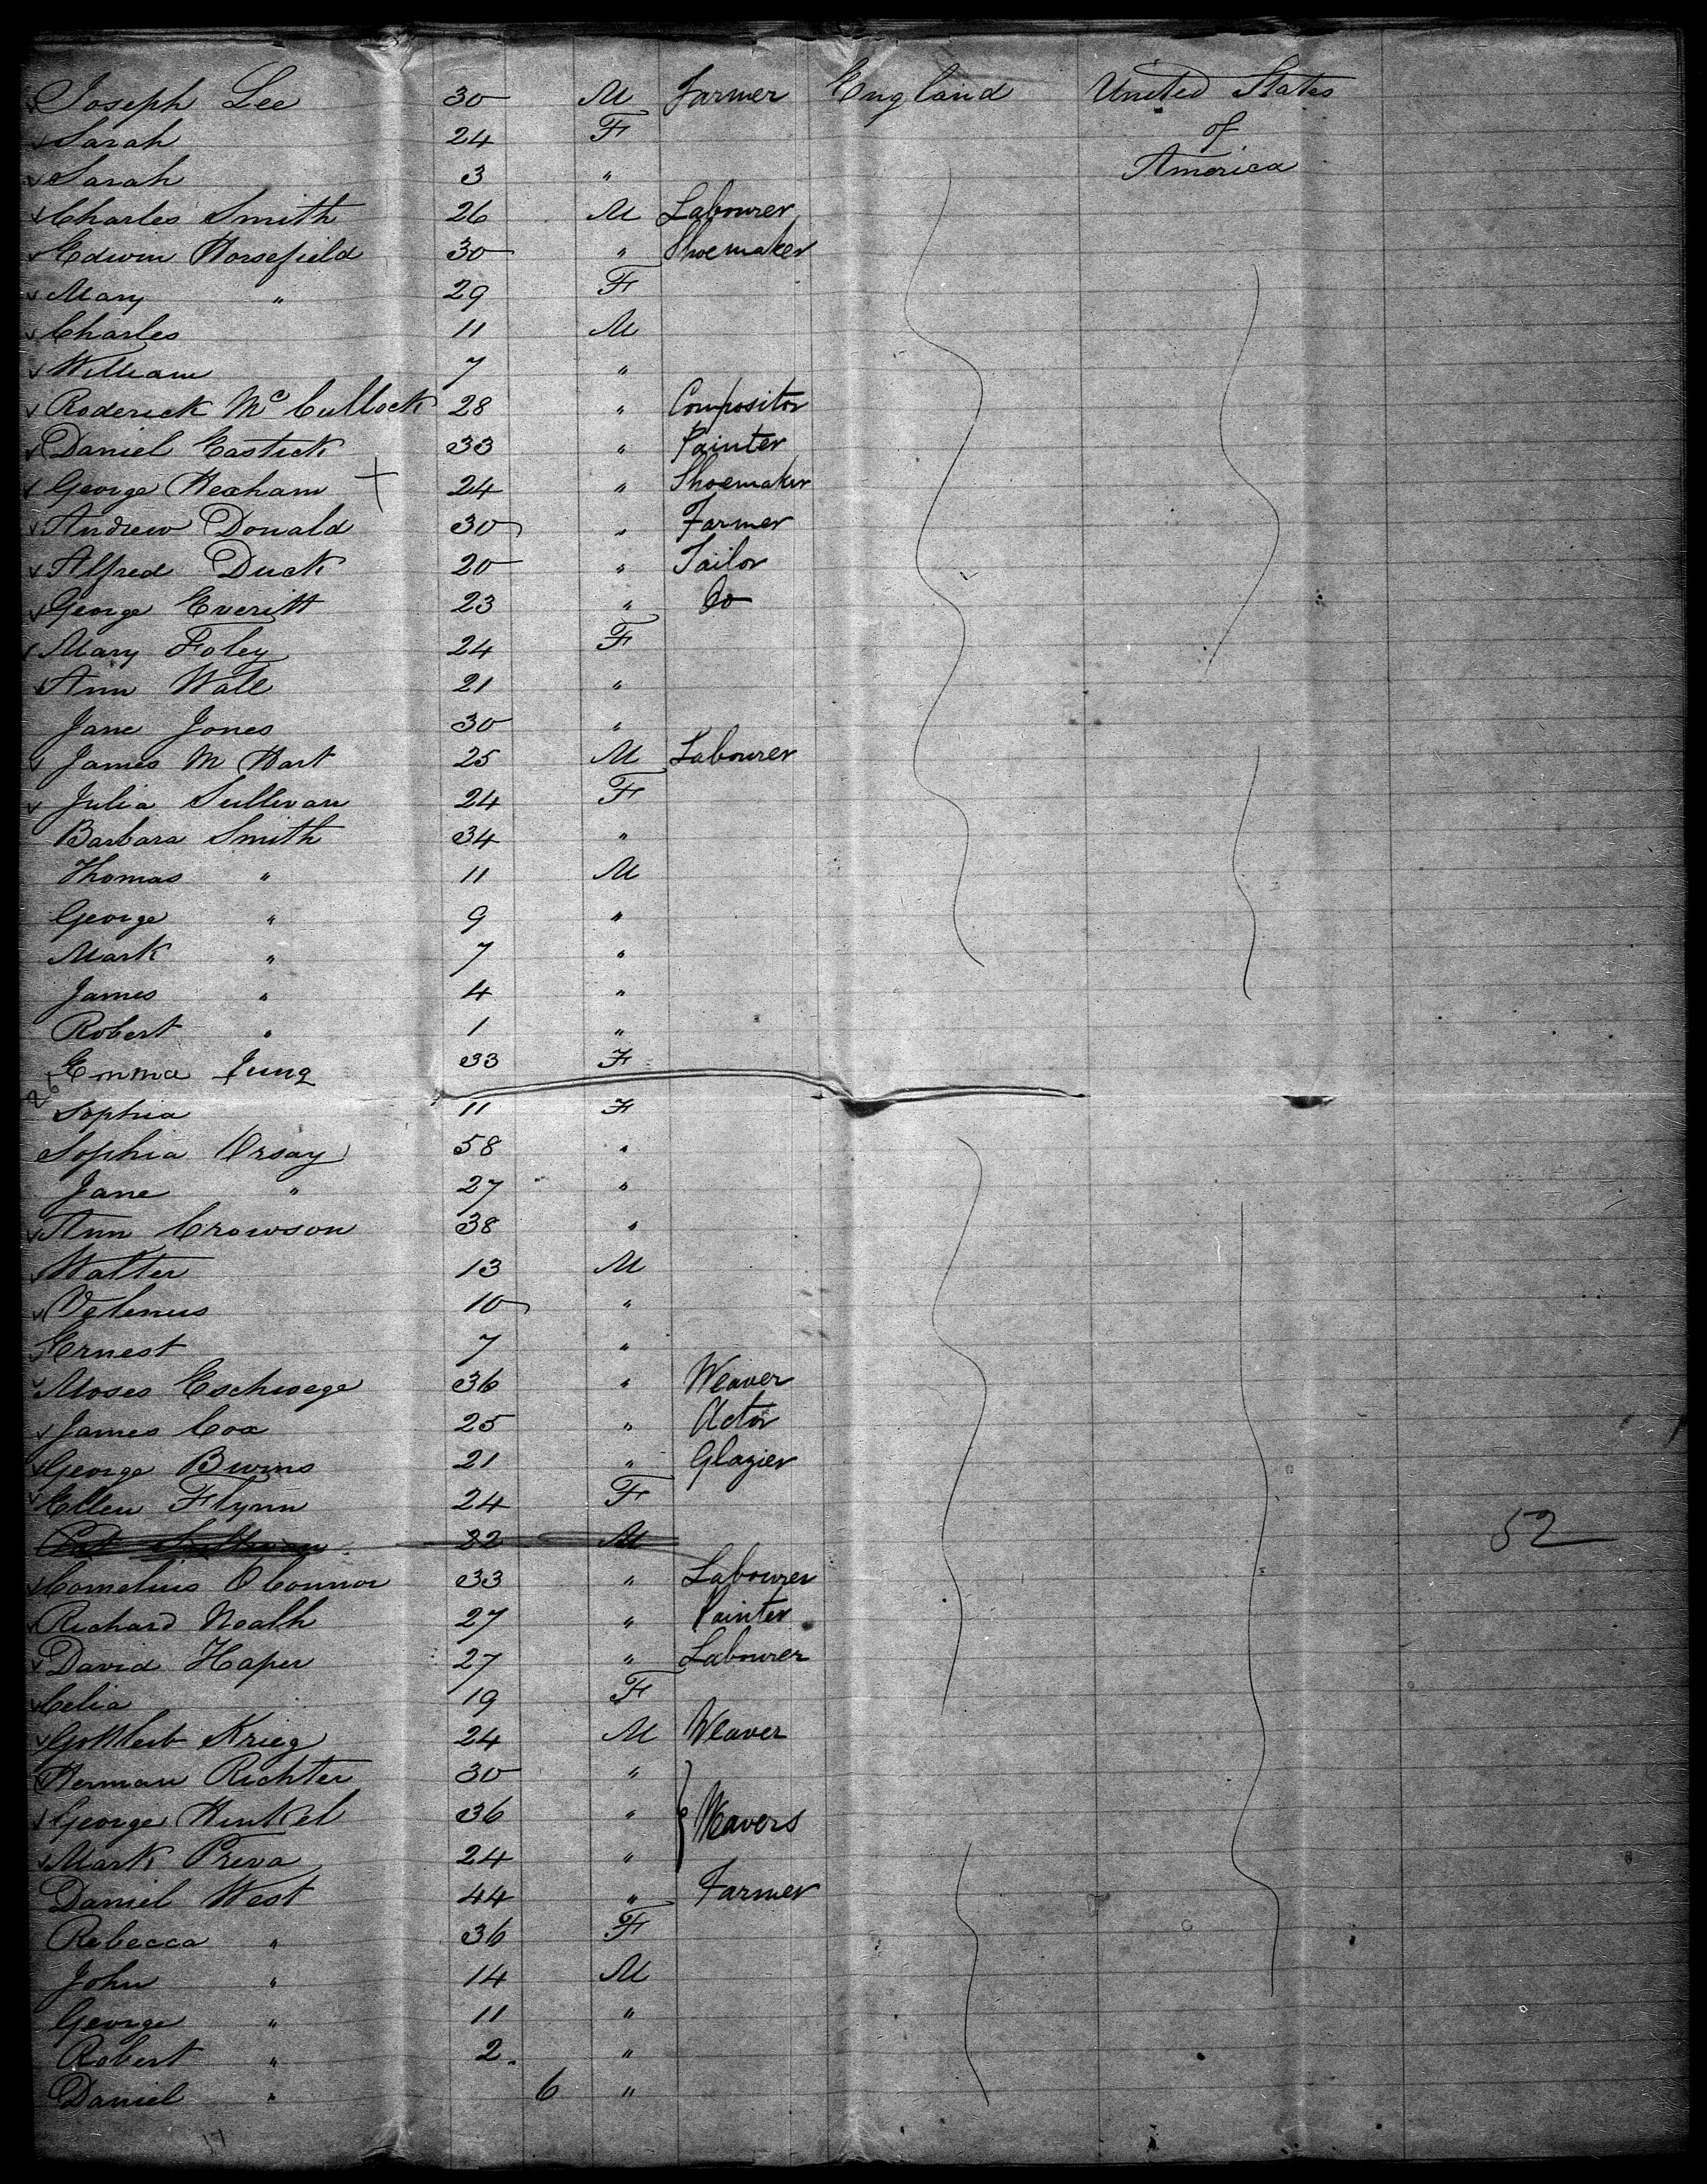 Joseph Lee 30 M Farmer England United States
Sarah 24 F of
Sarah 3 " America
Charles Smith 26 M Labourer
Edwin Horsefield 30 " Shoemaker
Mary " 29 F
Charles 11 M
William 7 "
Roderick Mc Cullock 28 " Compositor
Daniel Eastick 33 " Painter
George Hexham + 24 " Shoemaker
Andrew Donald 30 " Farmer
Alfred Duck 20 " Tailor
George Everitt 23 " Do
Mary Foley 24 F
Ann Wall 21 "
Jane Jones 30 "
James M Hart 25 M Labourer
Julia Sullivan 24 F
Barbara Smith 34 "
Thomas " 11 M
George " 9 "
Mark " 7 "
James " 4 "
Robert " 1 "
Emma Jung 33 F
Sophia 11 F
Sophia Orsay 58 "
Jane " 27 "
Ann Crowson 38 "
Walter 13 M
Velenus 10 "
Ernest 7 "
Moses Eschwege 36 " Weaver
James Cox 25 " Actor
George Burns 21 " Glazier
Ellen Flynn 24 F
Pat Sullivan 22 M
52
Cornelius O Connor 33 " Labourer
Richard Nealh 27 " Painter
David Haper 27 " Labourer
Celia 19 F
Gottleib Krieg 24 M Weaver
Herman Richter 30 "
George Hinkel 36 " Weavers
Mark Preva 24 "
Daniel West 44 " Farmer
Rebecca " 36 F
John " 14 M
George " 11 "
Robert " 2 "
Daniel " 6 "
17